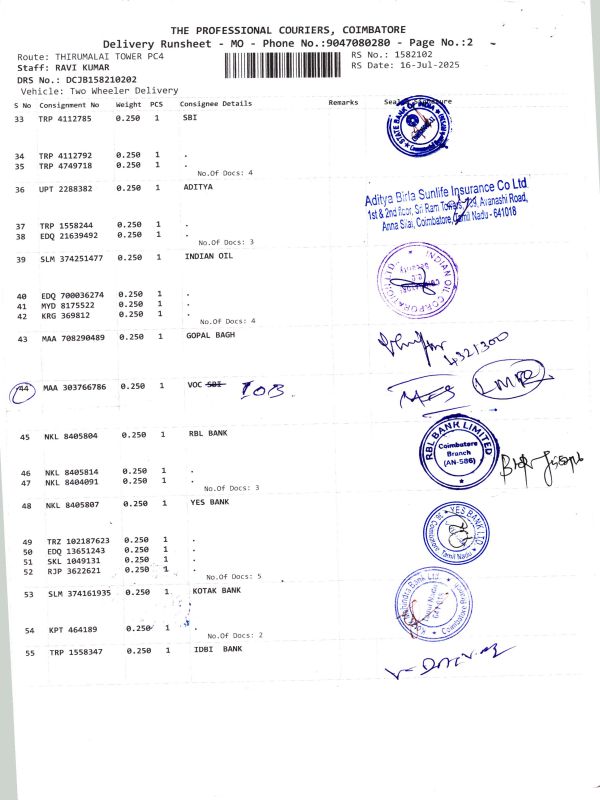 THE PROFESSIONAL COURIERS, COIMBATORE
Delivery Runsheet - MO - Phone No.:9047080280 - Page No.:2
Route: THIRUMALAI TOWER PC4
RS No.: 1582102
Staff: RAVI KUMAR
RS Date: 16-Jul-2025
DRS No.: DCJB158210202
Vehicle: Two Wheeler Delivery
S No Consignment No Weight PCS Consignee Details Remarks Seal Signature
33 TRP 4112785 0.250 1 SBI
STATE BANK OF INDIA
34 TRP 4112792 0.250 1 .
35 TRP 4749718 0.250 1 .
No.Of Docs: 4
36 UPT 2288382 0.250 1 ADITYA
Aditya Birla Sunlife Insurance Co Ltd
1st & 2nd floor, Sri Ram Towers, Avanashi Road,
Anna Silai, Coimbatore, Tamil Nadu - 641018
37 TRP 1558244 0.250 1 .
38 EDQ 21639492 0.250 1 .
No.Of Docs: 3
39 SLM 374251477 0.250 1 INDIAN OIL
INDIAN OIL CORPORATION LTD.
Security
40 EDQ 700036274 0.250 1 .
41 MYD 8175522 0.250 1 .
42 KRG 369812 0.250 1 .
No.Of Docs: 4
43 MAA 708290489 0.250 1 GOPAL BAGH
44 MAA 303766786 0.250 1 VOC SBI IOB
45 NKL 8405804 0.250 1 RBL BANK
RBL BANK LIMITED
Coimbatore
Branch
(AN-586)
46 NKL 8405814 0.250 1 .
47 NKL 8404091 0.250 1 .
No.Of Docs: 3
48 NKL 8405807 0.250 1 YES BANK
YES BANK LTD
Coimbatore Tamil Nadu
49 TRZ 102187623 0.250 1 .
50 EDQ 13651243 0.250 1 .
51 SKL 1049131 0.250 1 .
52 RJP 3622621 0.250 1 .
No.Of Docs: 5
53 SLM 374161935 0.250 1 KOTAK BANK
Kotak Mahindra Bank Ltd.
Coimbatore Branch
54 KPT 464189 0.250 1 .
No.Of Docs: 2
55 TRP 1558347 0.250 1 IDBI BANK